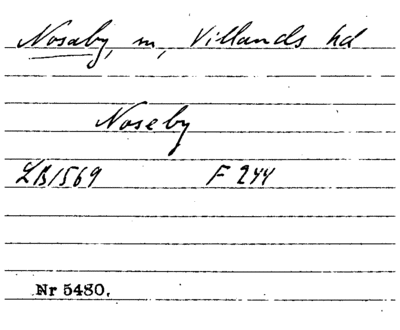 Nosaby, m, Villands hd
Noseby
LB1569 F 244
Nr 5480.